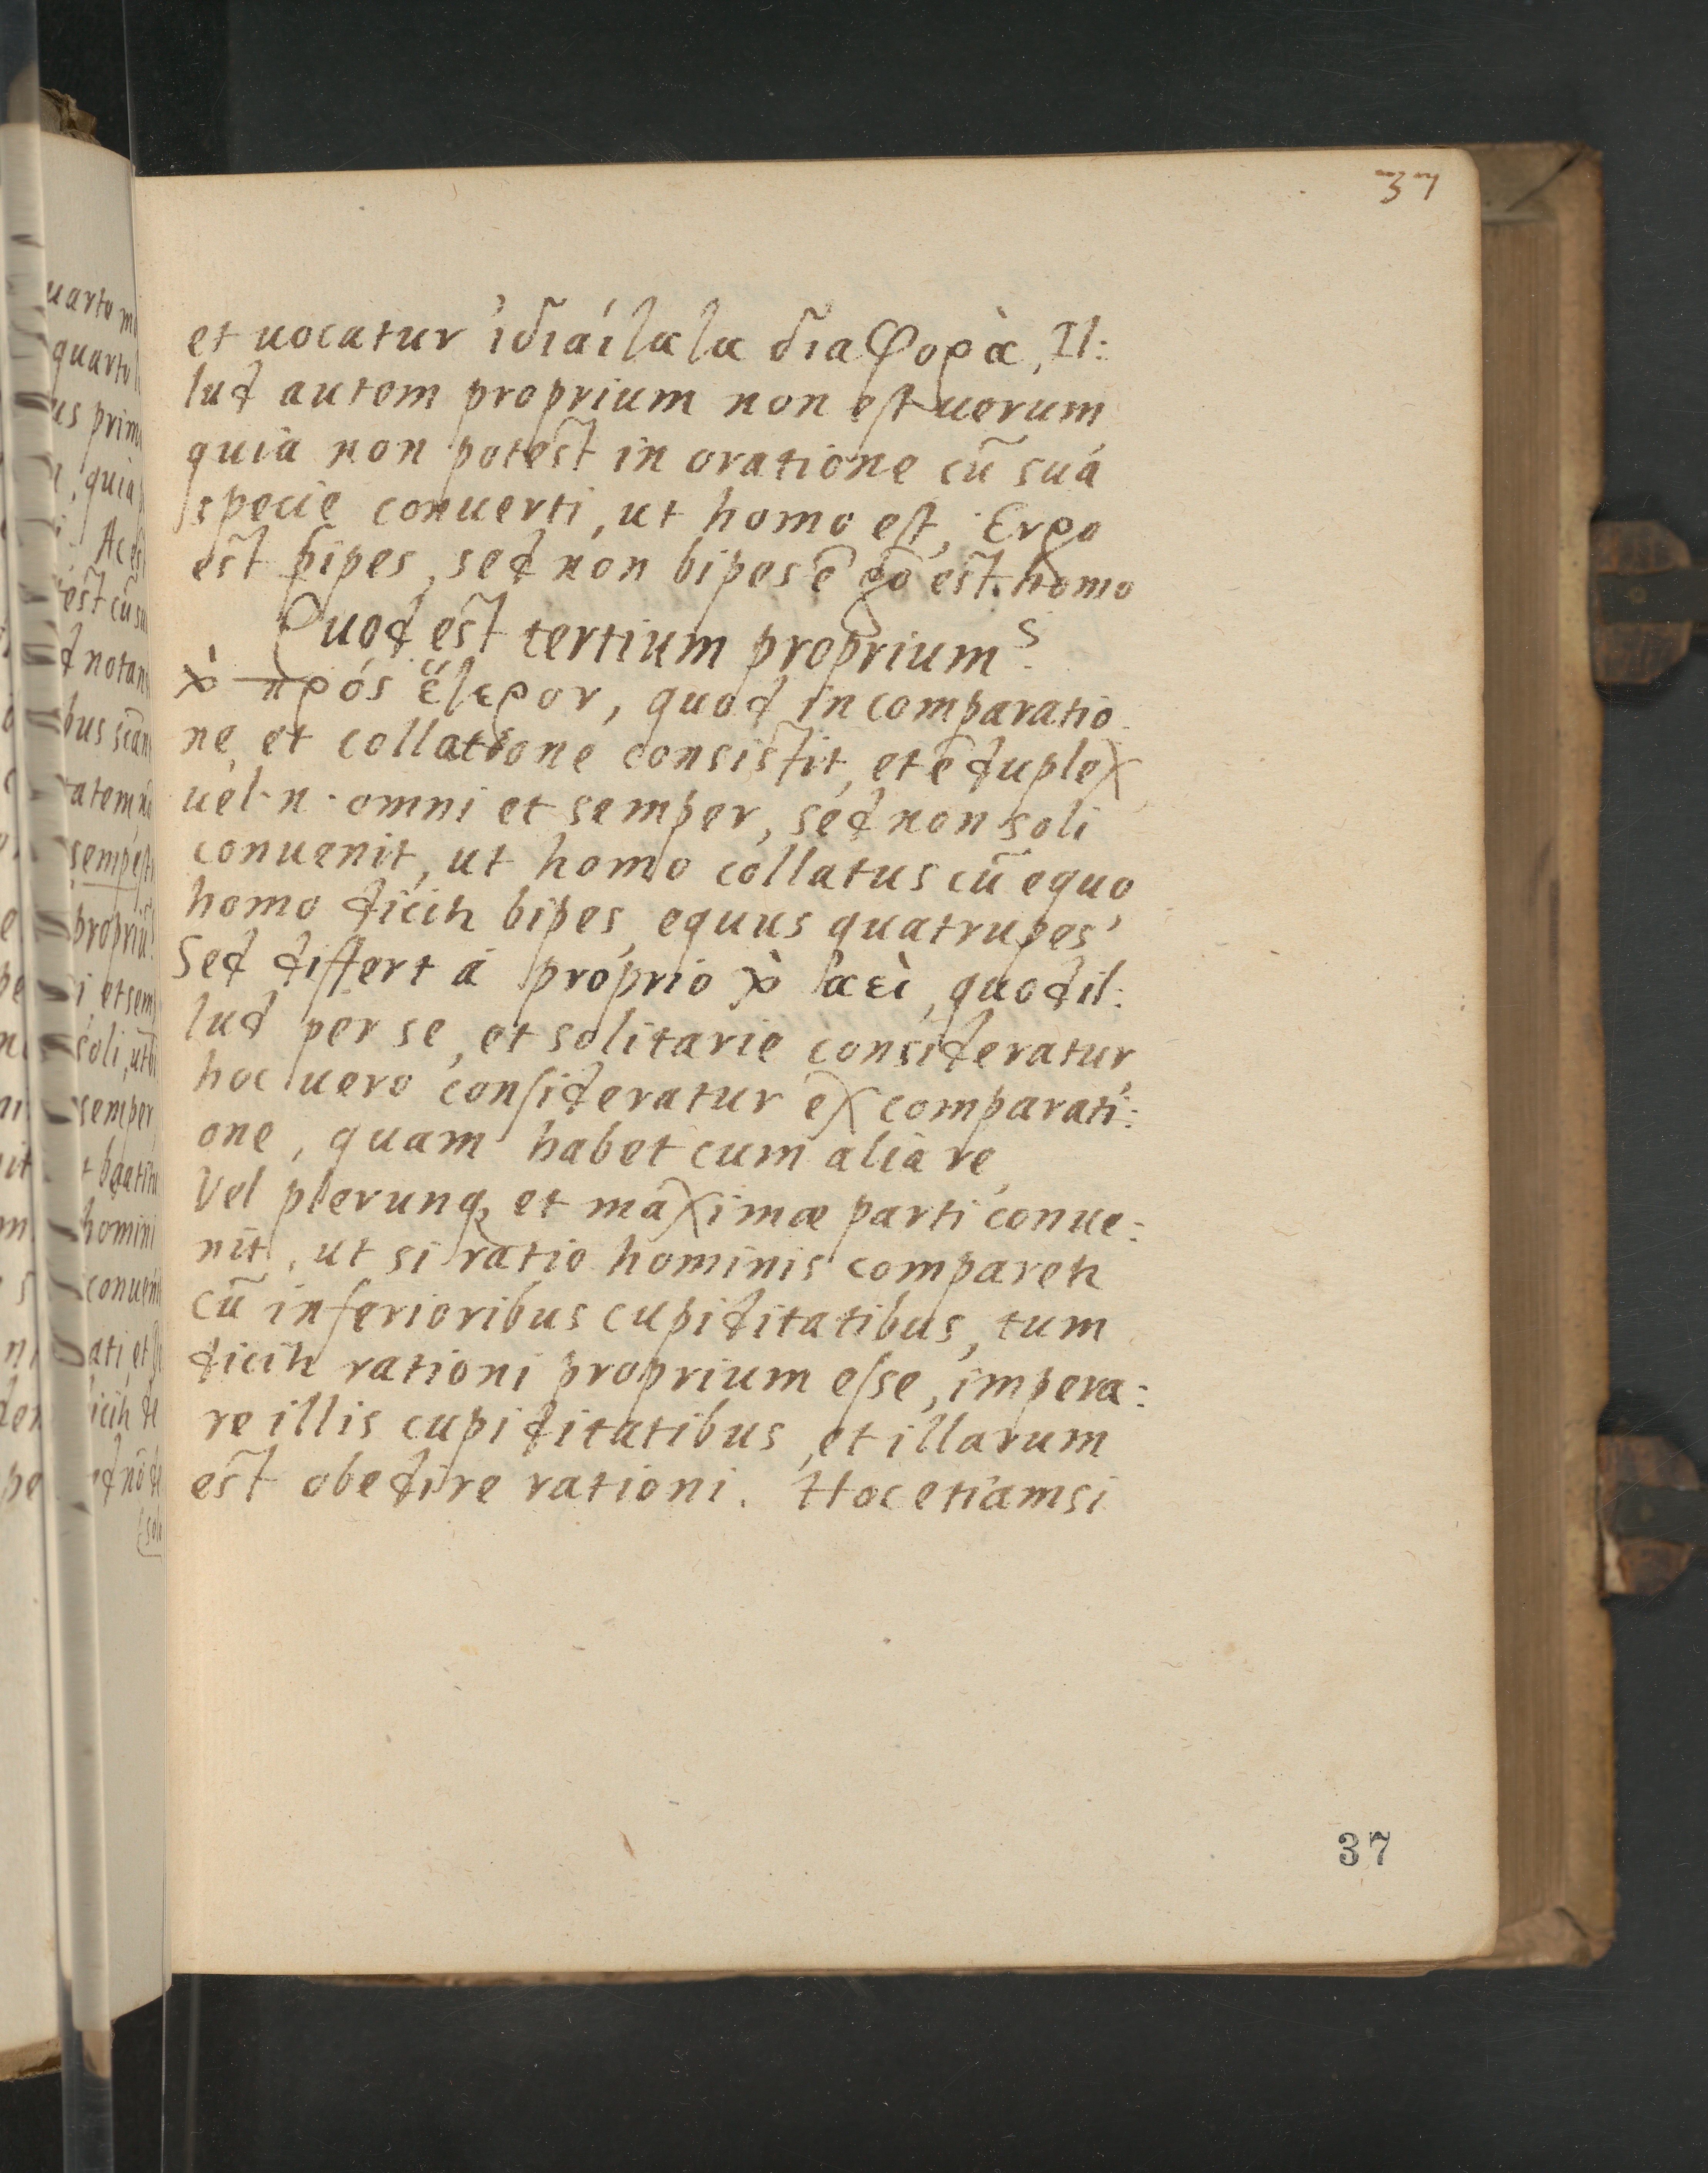 37
et uocatur ἰδιαίτατα διαφορὰ, Il:
lud autem proprium non est uerum
quia non potest in oratione cū suá
specie conuerti, ut homo est, Ergo
est bipes, sed non bipes ē gō est homo
Quod est tertium proprium?
πρός ἕτερον, quod in comparatio
ne, et collatione consistit, et ē duplex,
uel n. omni et semper, sed non soli
conuenit, ut homo collatus cū equo
homo dicitr bipes, equus quatrupes,
Sed differt á proprio ἀεὶ, quod il:
lud per se, et solitarie consideratur,
hoc uero consideratur ex comparati:
one, quam habet cum alia re,
Vel plerunq, et maximæ parti conue:
nit, ut si ratio hominis comparetr
cū inferioribus cupiditatibus, tum
dicitr rationi proprium esse, impera:
re illis cupiditatibus, et illarum
est obedire rationi. Hoc etiamsi
37